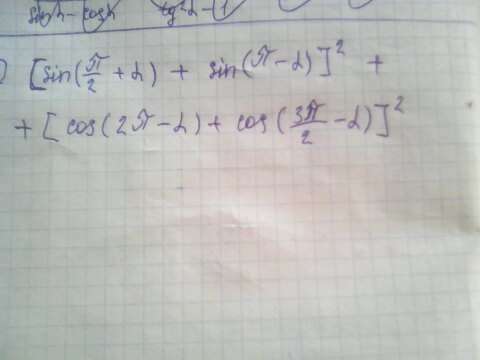 sin α − cos α tg²α − 1
) [sin(π/2 + α) + sin(π − α)]² +
+ [cos(2π − α) + cos(3π/2 − α)]²